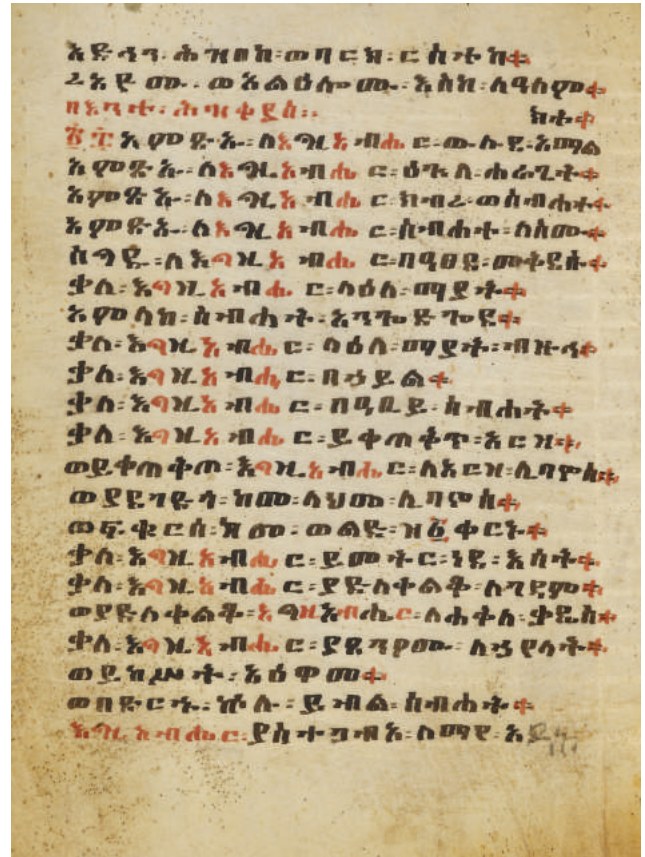 አድኅን፡ ሕዝበከ፡ ወባርክ፡ ርስተከ።
ረዐዮሙ፡ ወአልዕሎሙ፡ እስከ፡ ለዓለም።
በእንተ፡
፳፰ አምጽኡ፡ ለእግዚአብሔር፡ ውሉደ፡ አማል
አምጽኡ፡ ለእግዚአብሔር፡ ዕጕለ፡ ሐራጊት።
አምጽኡ፡ ለእግዚአብሔር፡ ክብረ፡ ወስብሐተ።
አምጽኡ፡ ለእግዚአብሔር፡ ስብሐተ፡ ለስሙ።
ስግዱ፡ ለእግዚአብሔር፡ በዓፀደ፡ መቅደሱ።
ቃለ፡ እግዚአብሔር፡ ላዕለ፡ ማያት።
አምላከ፡ ስብሐት፡ አንጐድጐደ።
ቃለ፡ እግዚአብሔር፡ ላዕለ፡ ማያት፡ ብዙኅ።
ቃለ፡ እግዚአብሔር፡ በኃይል።
ቃለ፡ እግዚአብሔር፡ በዓቢይ፡ ስብሐት።
ቃለ፡ እግዚአብሔር፡ ይቀጠቅጥ፡ አርዘ።
ወይቀጠቅጦ፡ እግዚአብሔር፡ ለአርዘ፡ ሊባኖስ።
ከመ፡ ላህመ፡ ሊባኖስ።
ወፍቁርሰ፡ ከመ፡ ወልድ፡ ዘ፩ ቀርኑ።
ቃለ፡ እግዚአብሔር፡ ይመትር፡ ነደ፡ እሳት።
ቃለ፡ እግዚአብሔር፡ ያድለቀልቆ፡ ለገዳም።
ወያድለቀልቆ፡ እግዚአብሔር፡ ለሐቅለ፡ ቃዴስ።
ቃለ፡ እግዚአብሔር፡ ያጸንዖሙ፡ ለኃየላት።
ወይከሥት፡ አዕዋመ።
ወበጽርሑ፡ ኵሉ፡ ይብል፡ ስብሐት።
እግዚአብሔር፡ ያስተጋብእ፡ ለማየ፡ አይኅ